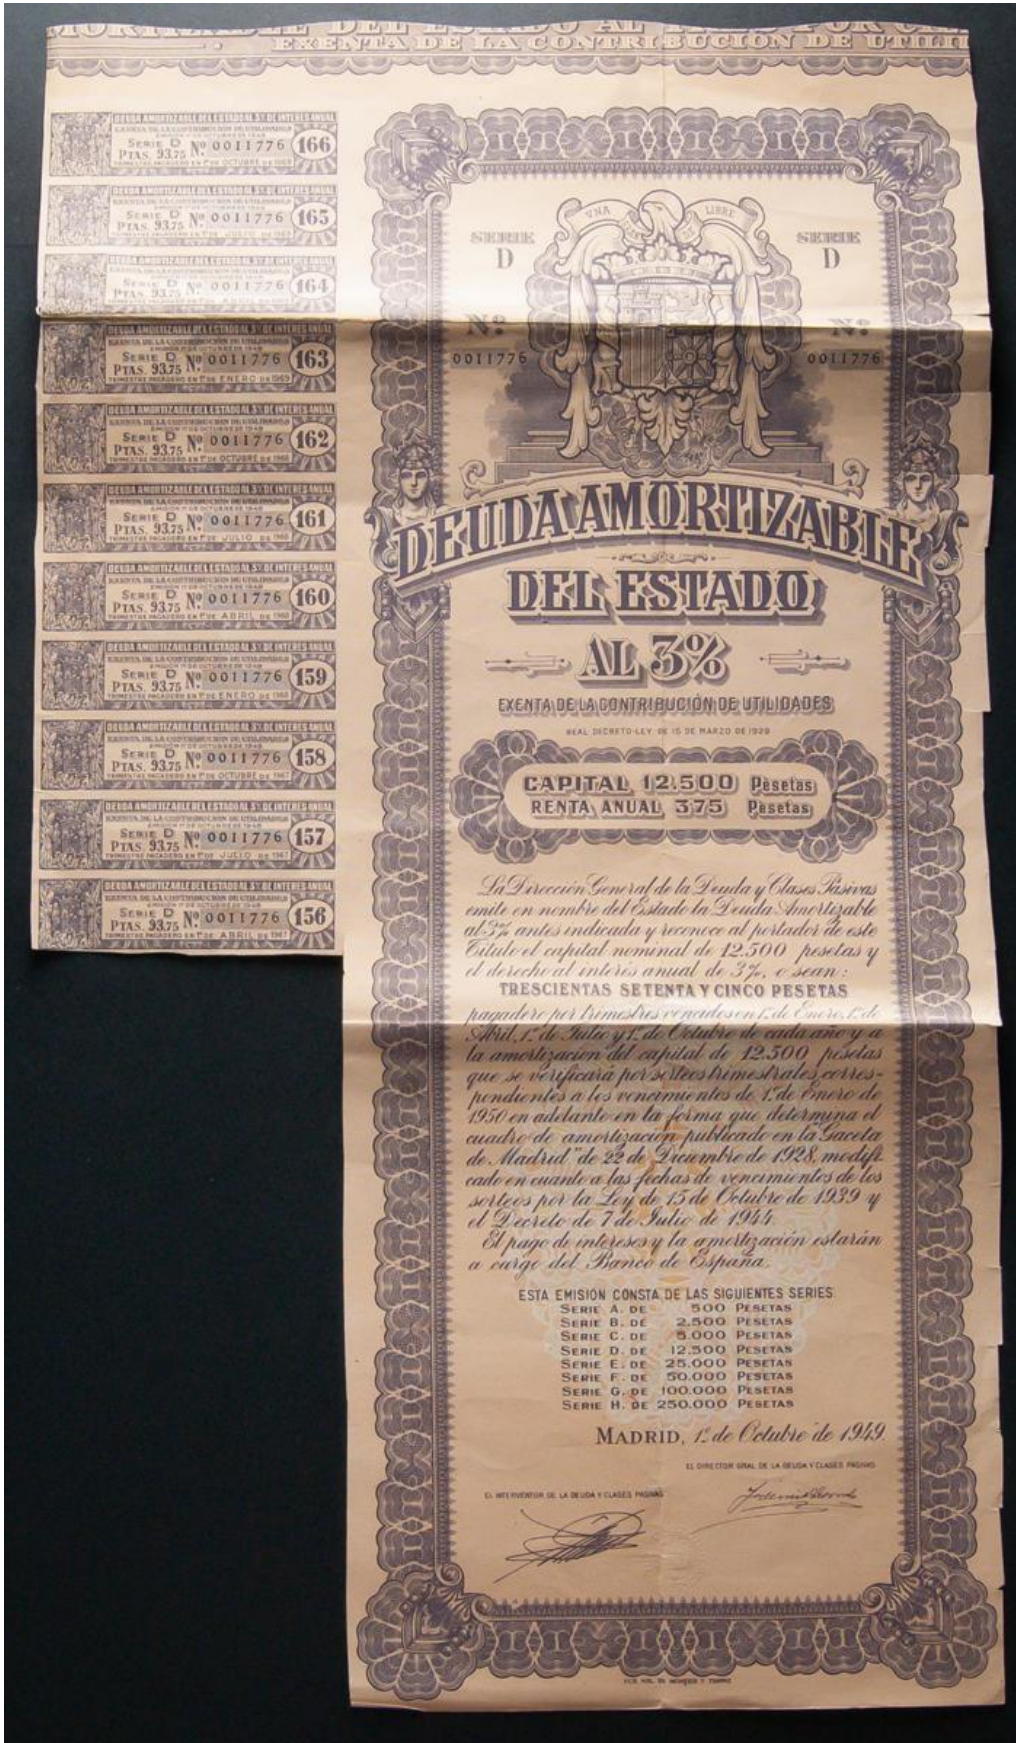 AMORTIZABLE DEL ESTADO AL
EXENTA DE LA CONTRIBUCIÓN DE UTILI
DEUDA AMORTIZABLE DEL ESTADO AL 3% DE INTERES ANUAL
EXENTA DE LA CONTRIBUCION DE UTILIDADES
SERIE D
PTAS. 93,75 Nº 0011776 166
TRIMESTRE PAGADERO EN 1º DE OCTUBRE DE 1969
DEUDA AMORTIZABLE DEL ESTADO AL 3% DE INTERES ANUAL
EXENTA DE LA CONTRIBUCION DE UTILIDADES
SERIE D
PTAS. 93,75 Nº 0011776 165
TRIMESTRE PAGADERO EN 1º DE JULIO DE 1969
DEUDA AMORTIZABLE DEL ESTADO AL 3% DE INTERES ANUAL
EXENTA DE LA CONTRIBUCION DE UTILIDADES
SERIE D
PTAS. 93,75 Nº 0011776 164
TRIMESTRE PAGADERO EN 1º DE ABRIL DE 1969
DEUDA AMORTIZABLE DEL ESTADO AL 3% DE INTERES ANUAL
EXENTA DE LA CONTRIBUCION DE UTILIDADES
SERIE D
PTAS. 93,75 Nº 0011776 163
TRIMESTRE PAGADERO EN 1º DE ENERO DE 1969
DEUDA AMORTIZABLE DEL ESTADO AL 3% DE INTERES ANUAL
EXENTA DE LA CONTRIBUCION DE UTILIDADES
SERIE D
PTAS. 93,75 Nº 0011776 162
TRIMESTRE PAGADERO EN 1º DE OCTUBRE DE 1968
DEUDA AMORTIZABLE DEL ESTADO AL 3% DE INTERES ANUAL
EXENTA DE LA CONTRIBUCION DE UTILIDADES
SERIE D
PTAS. 93,75 Nº 0011776 161
TRIMESTRE PAGADERO EN 1º DE JULIO DE 1968
DEUDA AMORTIZABLE DEL ESTADO AL 3% DE INTERES ANUAL
EXENTA DE LA CONTRIBUCION DE UTILIDADES
SERIE D
PTAS. 93,75 Nº 0011776 160
TRIMESTRE PAGADERO EN 1º DE ABRIL DE 1968
DEUDA AMORTIZABLE DEL ESTADO AL 3% DE INTERES ANUAL
EXENTA DE LA CONTRIBUCION DE UTILIDADES
SERIE D
PTAS. 93,75 Nº 0011776 159
TRIMESTRE PAGADERO EN 1º DE ENERO DE 1968
DEUDA AMORTIZABLE DEL ESTADO AL 3% DE INTERES ANUAL
EXENTA DE LA CONTRIBUCION DE UTILIDADES
SERIE D
PTAS. 93,75 Nº 0011776 158
TRIMESTRE PAGADERO EN 1º DE OCTUBRE DE 1967
DEUDA AMORTIZABLE DEL ESTADO AL 3% DE INTERES ANUAL
EXENTA DE LA CONTRIBUCION DE UTILIDADES
SERIE D
PTAS. 93,75 Nº 0011776 157
TRIMESTRE PAGADERO EN 1º DE JULIO DE 1967
DEUDA AMORTIZABLE DEL ESTADO AL 3% DE INTERES ANUAL
EXENTA DE LA CONTRIBUCION DE UTILIDADES
SERIE D
PTAS. 93,75 Nº 0011776 156
TRIMESTRE PAGADERO EN 1º DE ABRIL DE 1967
UNA LIBRE
SERIE SERIE
D D
Nº Nº
0011776 0011776
DEUDA AMORTIZABLE
DEL ESTADO
AL 3%
EXENTA DE LA CONTRIBUCIÓN DE UTILIDADES
REAL DECRETO-LEY DE 15 DE MARZO DE 1928
CAPITAL 12.500 Pesetas
RENTA ANUAL 375 Pesetas
La Dirección General de la Deuda y Clases Pasivas
emite en nombre del Estado la Deuda Amortizable
al 3% antes indicada y reconoce al portador de este
Título el capital nominal de 12.500 pesetas y
el derecho al interés anual de 3%, o sean:
TRESCIENTAS SETENTA Y CINCO PESETAS
pagadero por trimestres vencidos en 1º de Enero, 1º de
Abril, 1º de Julio y 1º de Octubre de cada año y a
la amortización del capital de 12.500 pesetas
que se verificará por sorteos trimestrales, corres-
pondientes a los vencimientos de 1º de Enero de
1950 en adelante en la forma que determina el
cuadro de amortización publicado en la "Gaceta
de Madrid" de 22 de Diciembre de 1928, modifi
cado en cuanto a las fechas de vencimientos de los
sorteos por la Ley de 15 de Octubre de 1939 y
el Decreto de 7 de Julio de 1944.
El pago de intereses y la amortización estarán
a cargo del Banco de España.
ESTA EMISIÓN CONSTA DE LAS SIGUIENTES SERIES:
SERIE A. DE 500 PESETAS
SERIE B. DE 2.500 PESETAS
SERIE C. DE 5.000 PESETAS
SERIE D. DE 12.500 PESETAS
SERIE E. DE 25.000 PESETAS
SERIE F. DE 50.000 PESETAS
SERIE G. DE 100.000 PESETAS
SERIE H. DE 250.000 PESETAS
MADRID, 1º de Octubre de 1949.
EL DIRECTOR GRAL. DE LA DEUDA Y CLASES PASIVAS
EL INTERVENTOR DE LA DEUDA Y CLASES PASIVAS